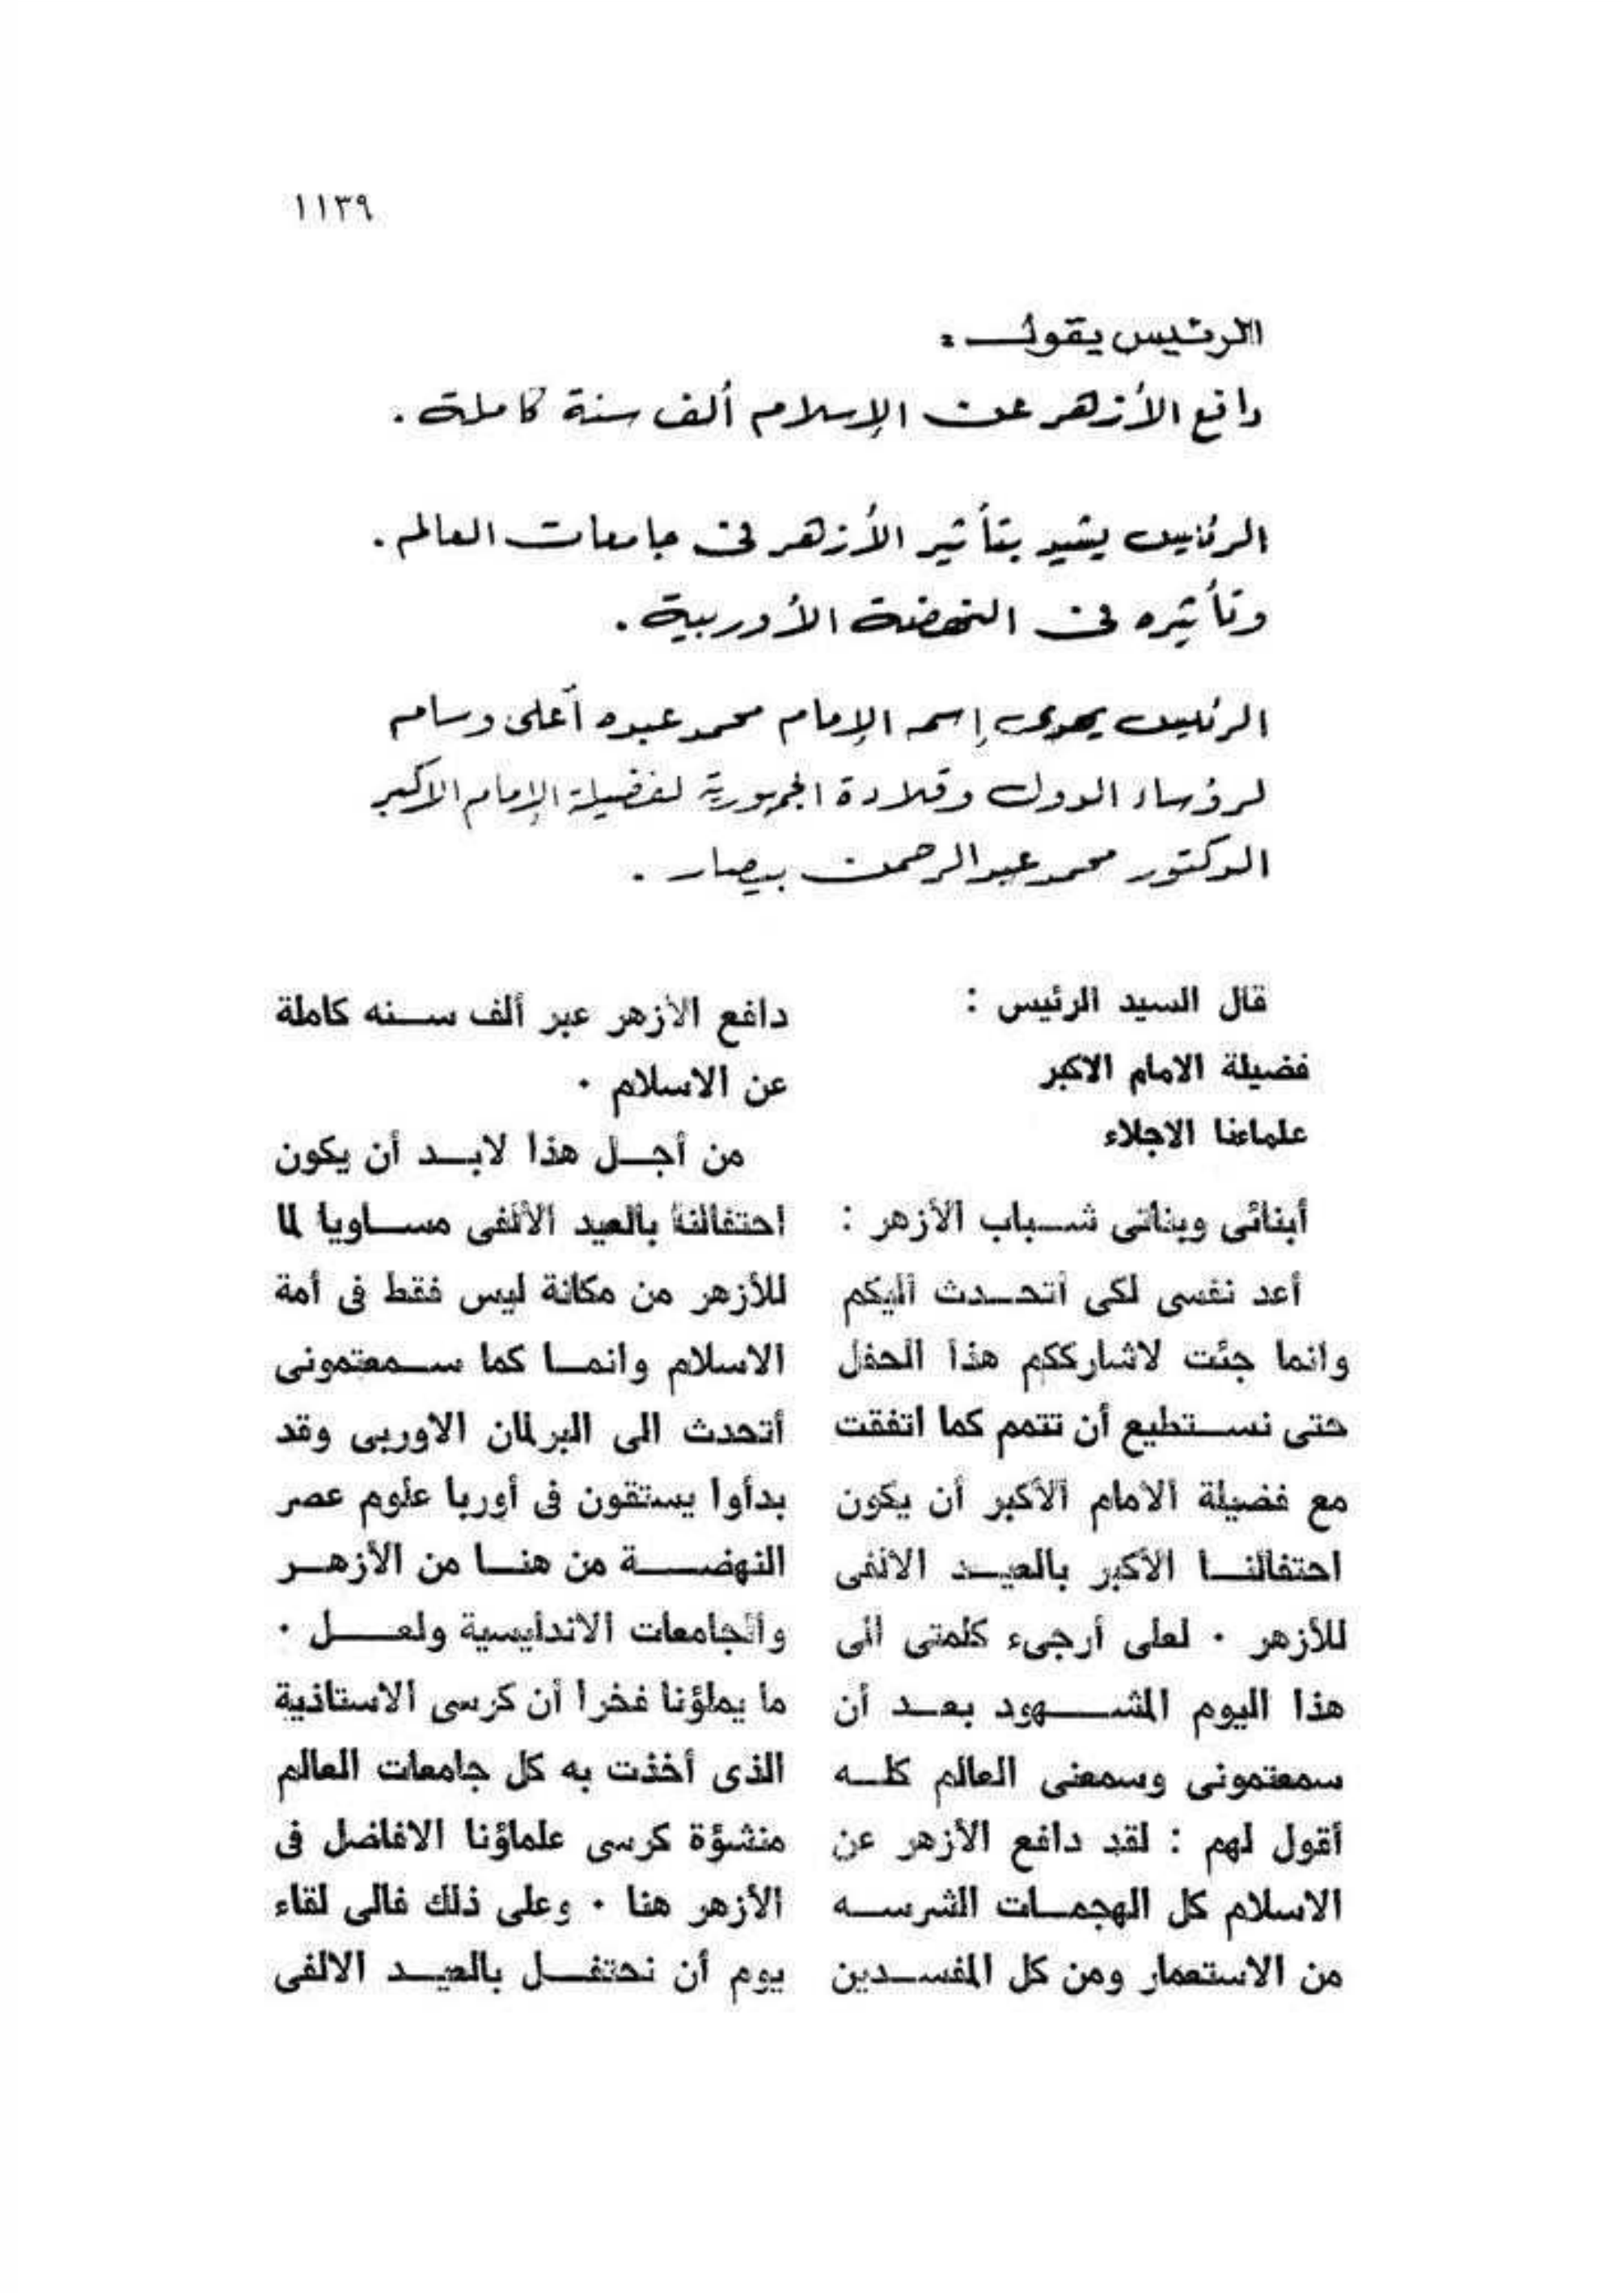 ١١٣٩
الرئيس يقول :
دافع الأزهر عن الإسلام ألف سنة كاملة .
الرئيس يشيد بتأثير الأزهر فى جامعات العالم .
وتأثيره فى النهضة الأوربية .
الرئيس يهدى إسم الإمام محمد عبده أعلى وسام
لرؤساء الدول وقلادة الجمهورية لفضيلة الإمام الأكبر
الدكتور محمد عبد الرحمن بيصار .
قال السيد الرئيس :
فضيلة الامام الاكبر
علماءنا الاجلاء
أبنائى وبناتى شباب الأزهر :
أعد نفسى لكى أتحدث اليكم
وانما جئت لاشارككم هذا الحفل
حتى نستطيع أن تتمم كما اتفقت
مع فضيلة الامام الأكبر أن يكون
احتفالنا الأكبر بالعيد الالفى
للأزهر ٠ لعلى أرجىء كلمتى الى
هذا اليوم المشهود بعد أن
سمعتمونى وسمعنى العالم كله
أقول لهم : لقد دافع الأزهر عن
الاسلام كل الهجمات الشرسه
من الاستعمار ومن كل المفسدين
دافع الأزهر عبر ألف سنه كاملة
عن الاسلام ٠
من أجل هذا لابد أن يكون
احتفالنا بالعيد الألفى مساويا لما
للأزهر من مكانة ليس فقط فى أمة
الاسلام وانما كما سمعتمونى
أتحدث الى البرلمان الاوربى وقد
بدأوا يستقون فى أوربا علوم عصر
النهضة من هنا من الأزهر
والجامعات الاندليسية ولعل ٠
ما يملؤنا فخرا أن كرسى الاستاذية
الذى أخذت به كل جامعات العالم
منشؤة كرسى علماؤنا الافاضل فى
الأزهر هنا ٠ وعلى ذلك فالى لقاء
يوم أن نحتفل بالعيد الالفى